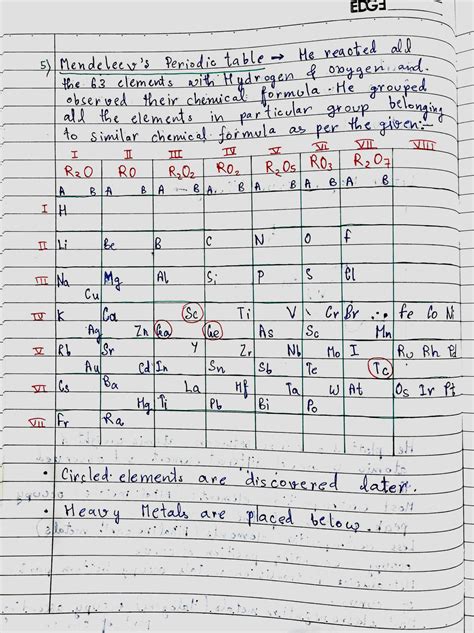 EDGE
5) Mendeleev's Periodic table → He reacted all
the 63 elements with Hydrogen & oxygen and
observed their chemical formula. He grouped
all the elements in particular group belonging
to similar chemical formula as per the given:-
I II III IV V VI VII VIII
R₂O RO R₂O₂ RO₂ R₂O₅ RO₃ R₂O₇
A B A B A B A B A B A B A B
I H
II Li Be B C N O f
III Na Mg Al Si P S Cl
Cu
IV K Ca Sc Ti V Cr Br fe Co Ni
Ag Zn Ga Ge As Sc Mn
V Rb Sr Y Zr Nb Mo I Ru Rh Pd
Au Cd In Sn Sb Te Tc
VI Cs Ba La Hf Ta W At Os Ir Pt
Hg Ti Pb Bi Po
VII Fr Ra
• Circled elements are discovered later.
• Heavy Metals are placed below.